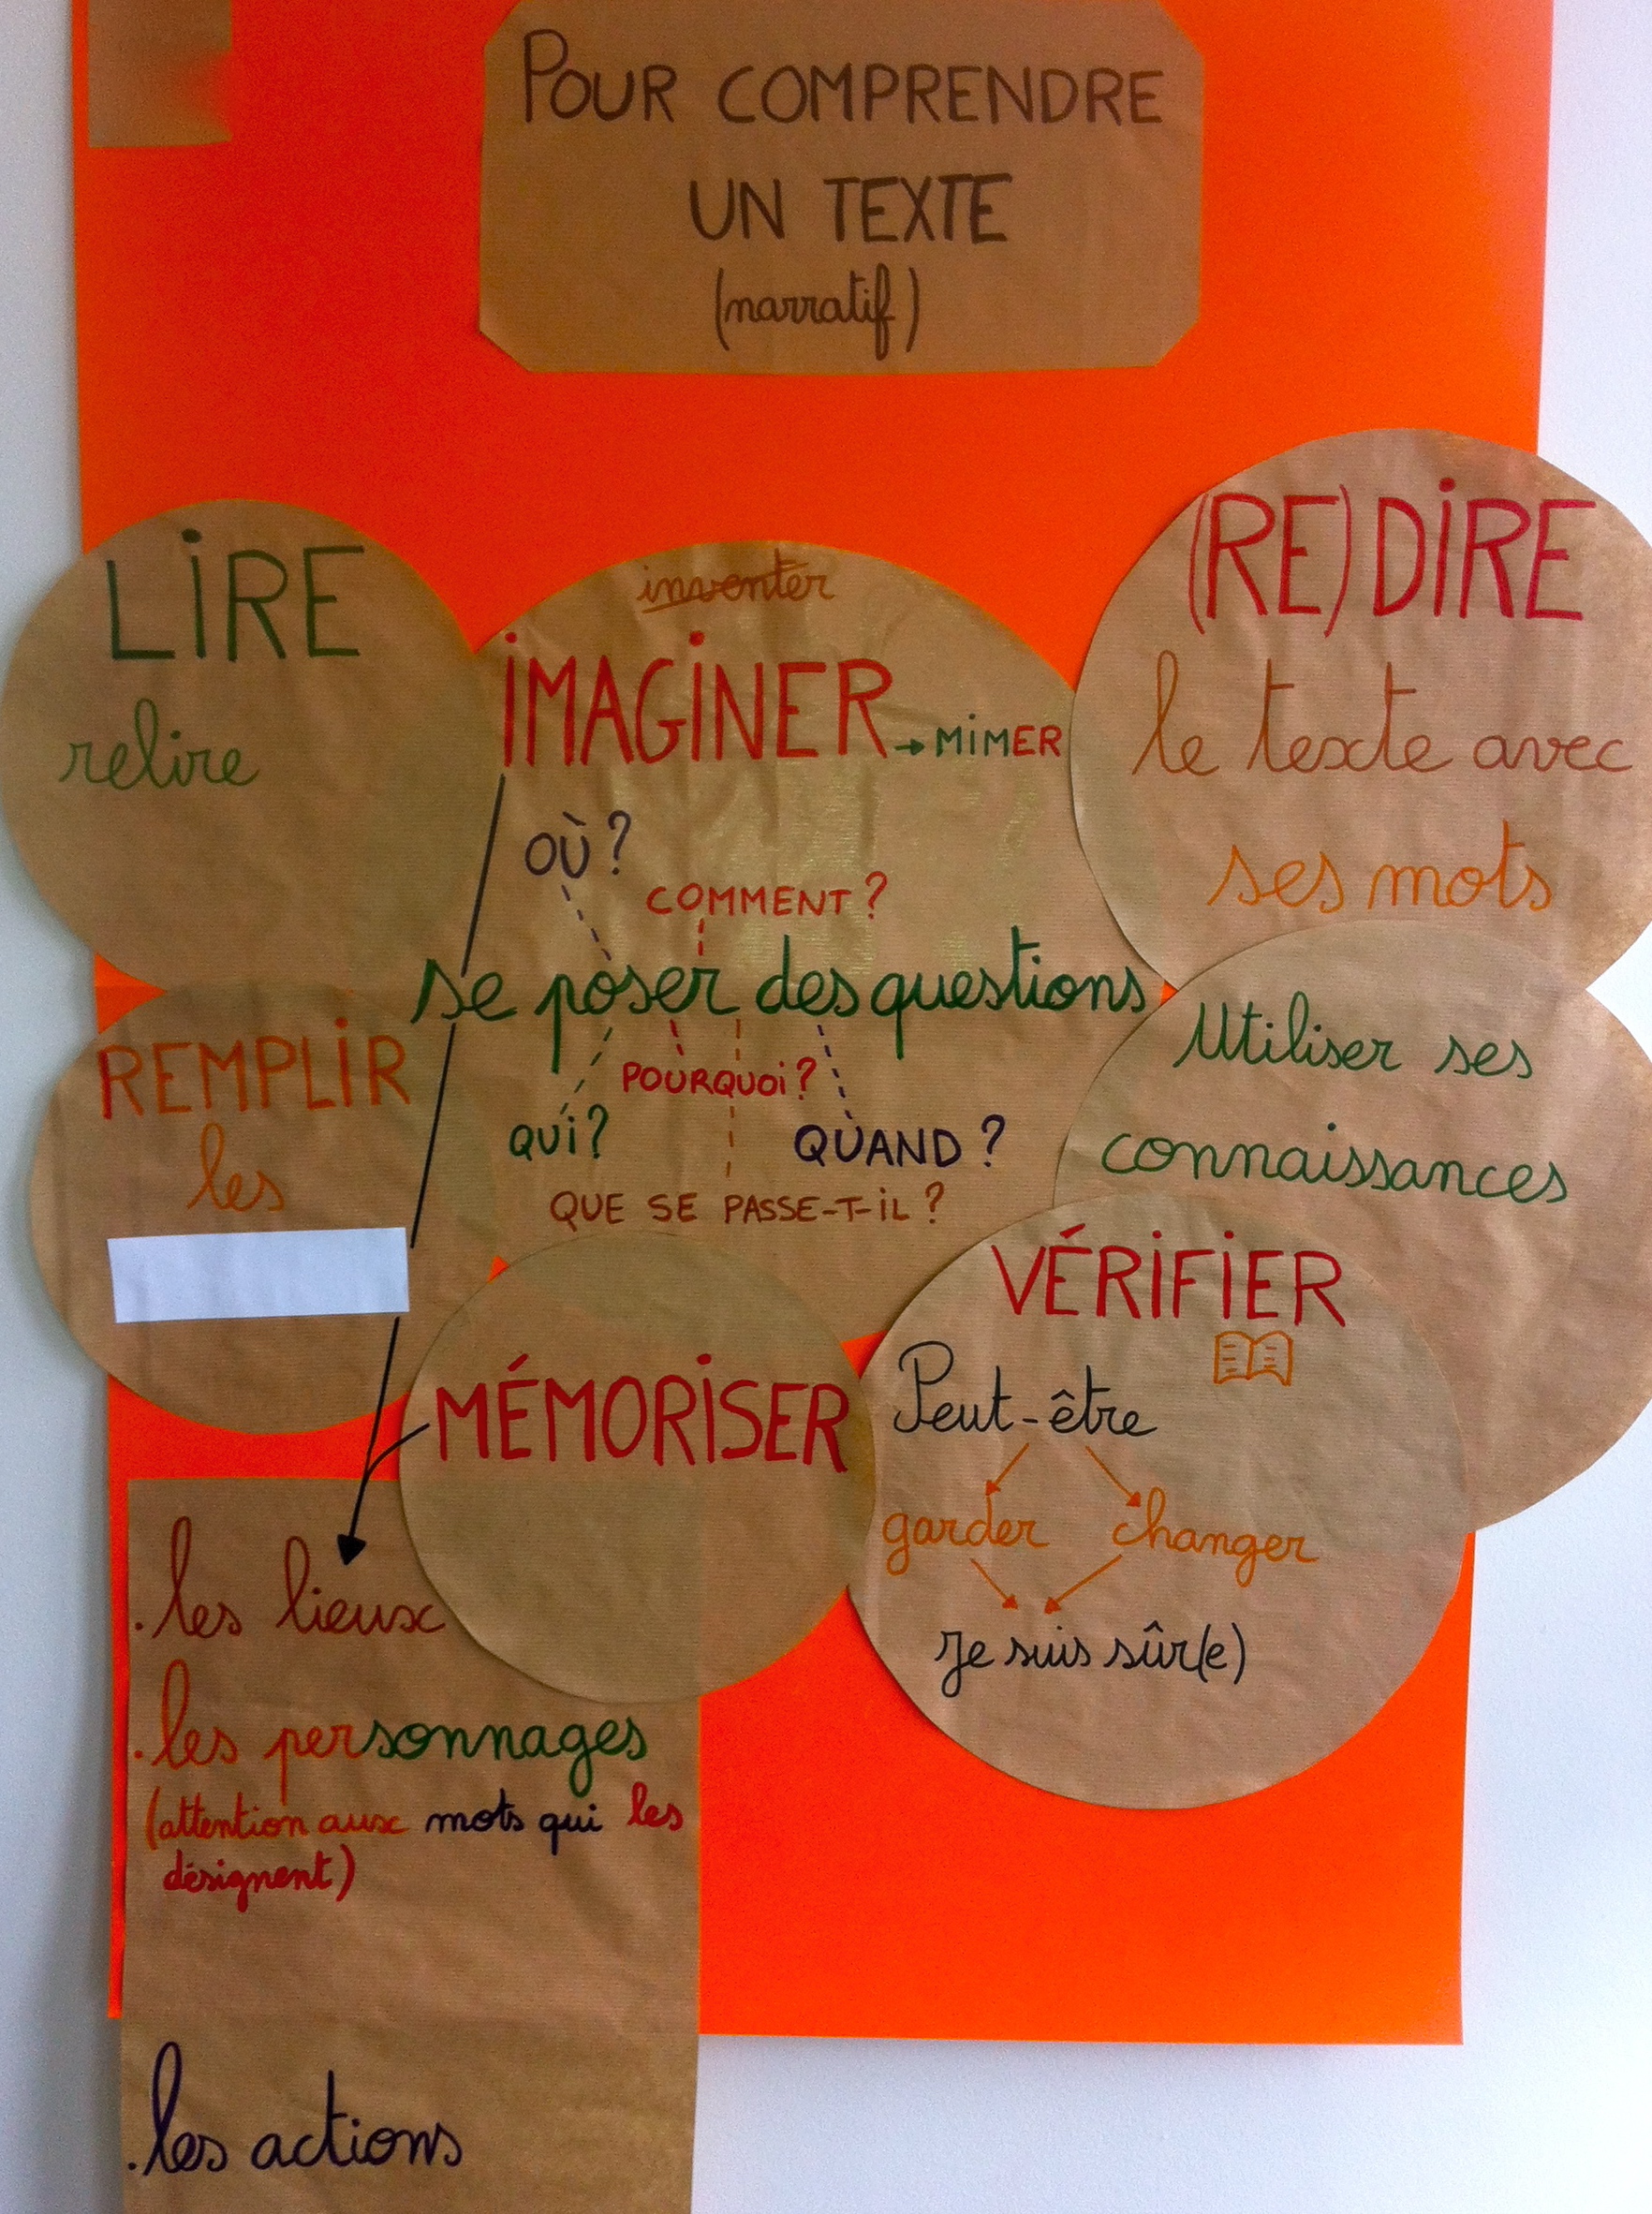 POUR COMPRENDRE
UN TEXTE
(narratif)
LIRE
relire
inventer
IMAGINER → MIMER
OÙ ?
COMMENT ?
se poser des questions
POURQUOI ?
QUI ?
QUAND ?
QUE SE PASSE-T-IL ?
(RE)DIRE
le texte avec
ses mots
REMPLIR
les
Utiliser ses
connaissances
MÉMORISER
VÉRIFIER
Peut-être
garder changer
Je suis sûr(e)
. les lieux
. les personnages
(attention aux mots qui les
désignent)
. les actions